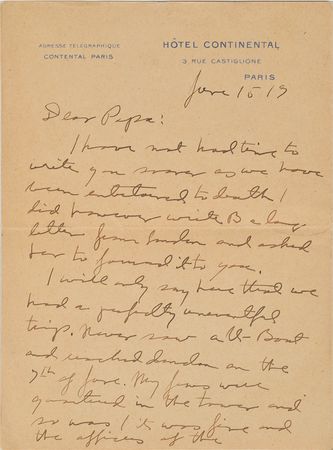 ADRESSE TÉLÉGRAPHIQUE
CONTENTAL PARIS
HÔTEL CONTINENTAL
3 RUE CASTIGLIONE
PARIS
June 15 19
Dear Papa:
I have not had time to
write you sooner as we have
been entertained to death I
did however write B a long
letter from London and asked
her to forward it to you.
I will only say here that we
had a perfectly uneventful
trip. Never saw a U-Boat
and reached London on the
7th of June. My were
quartered in the tower and
so was I it was fine and
the officers of the